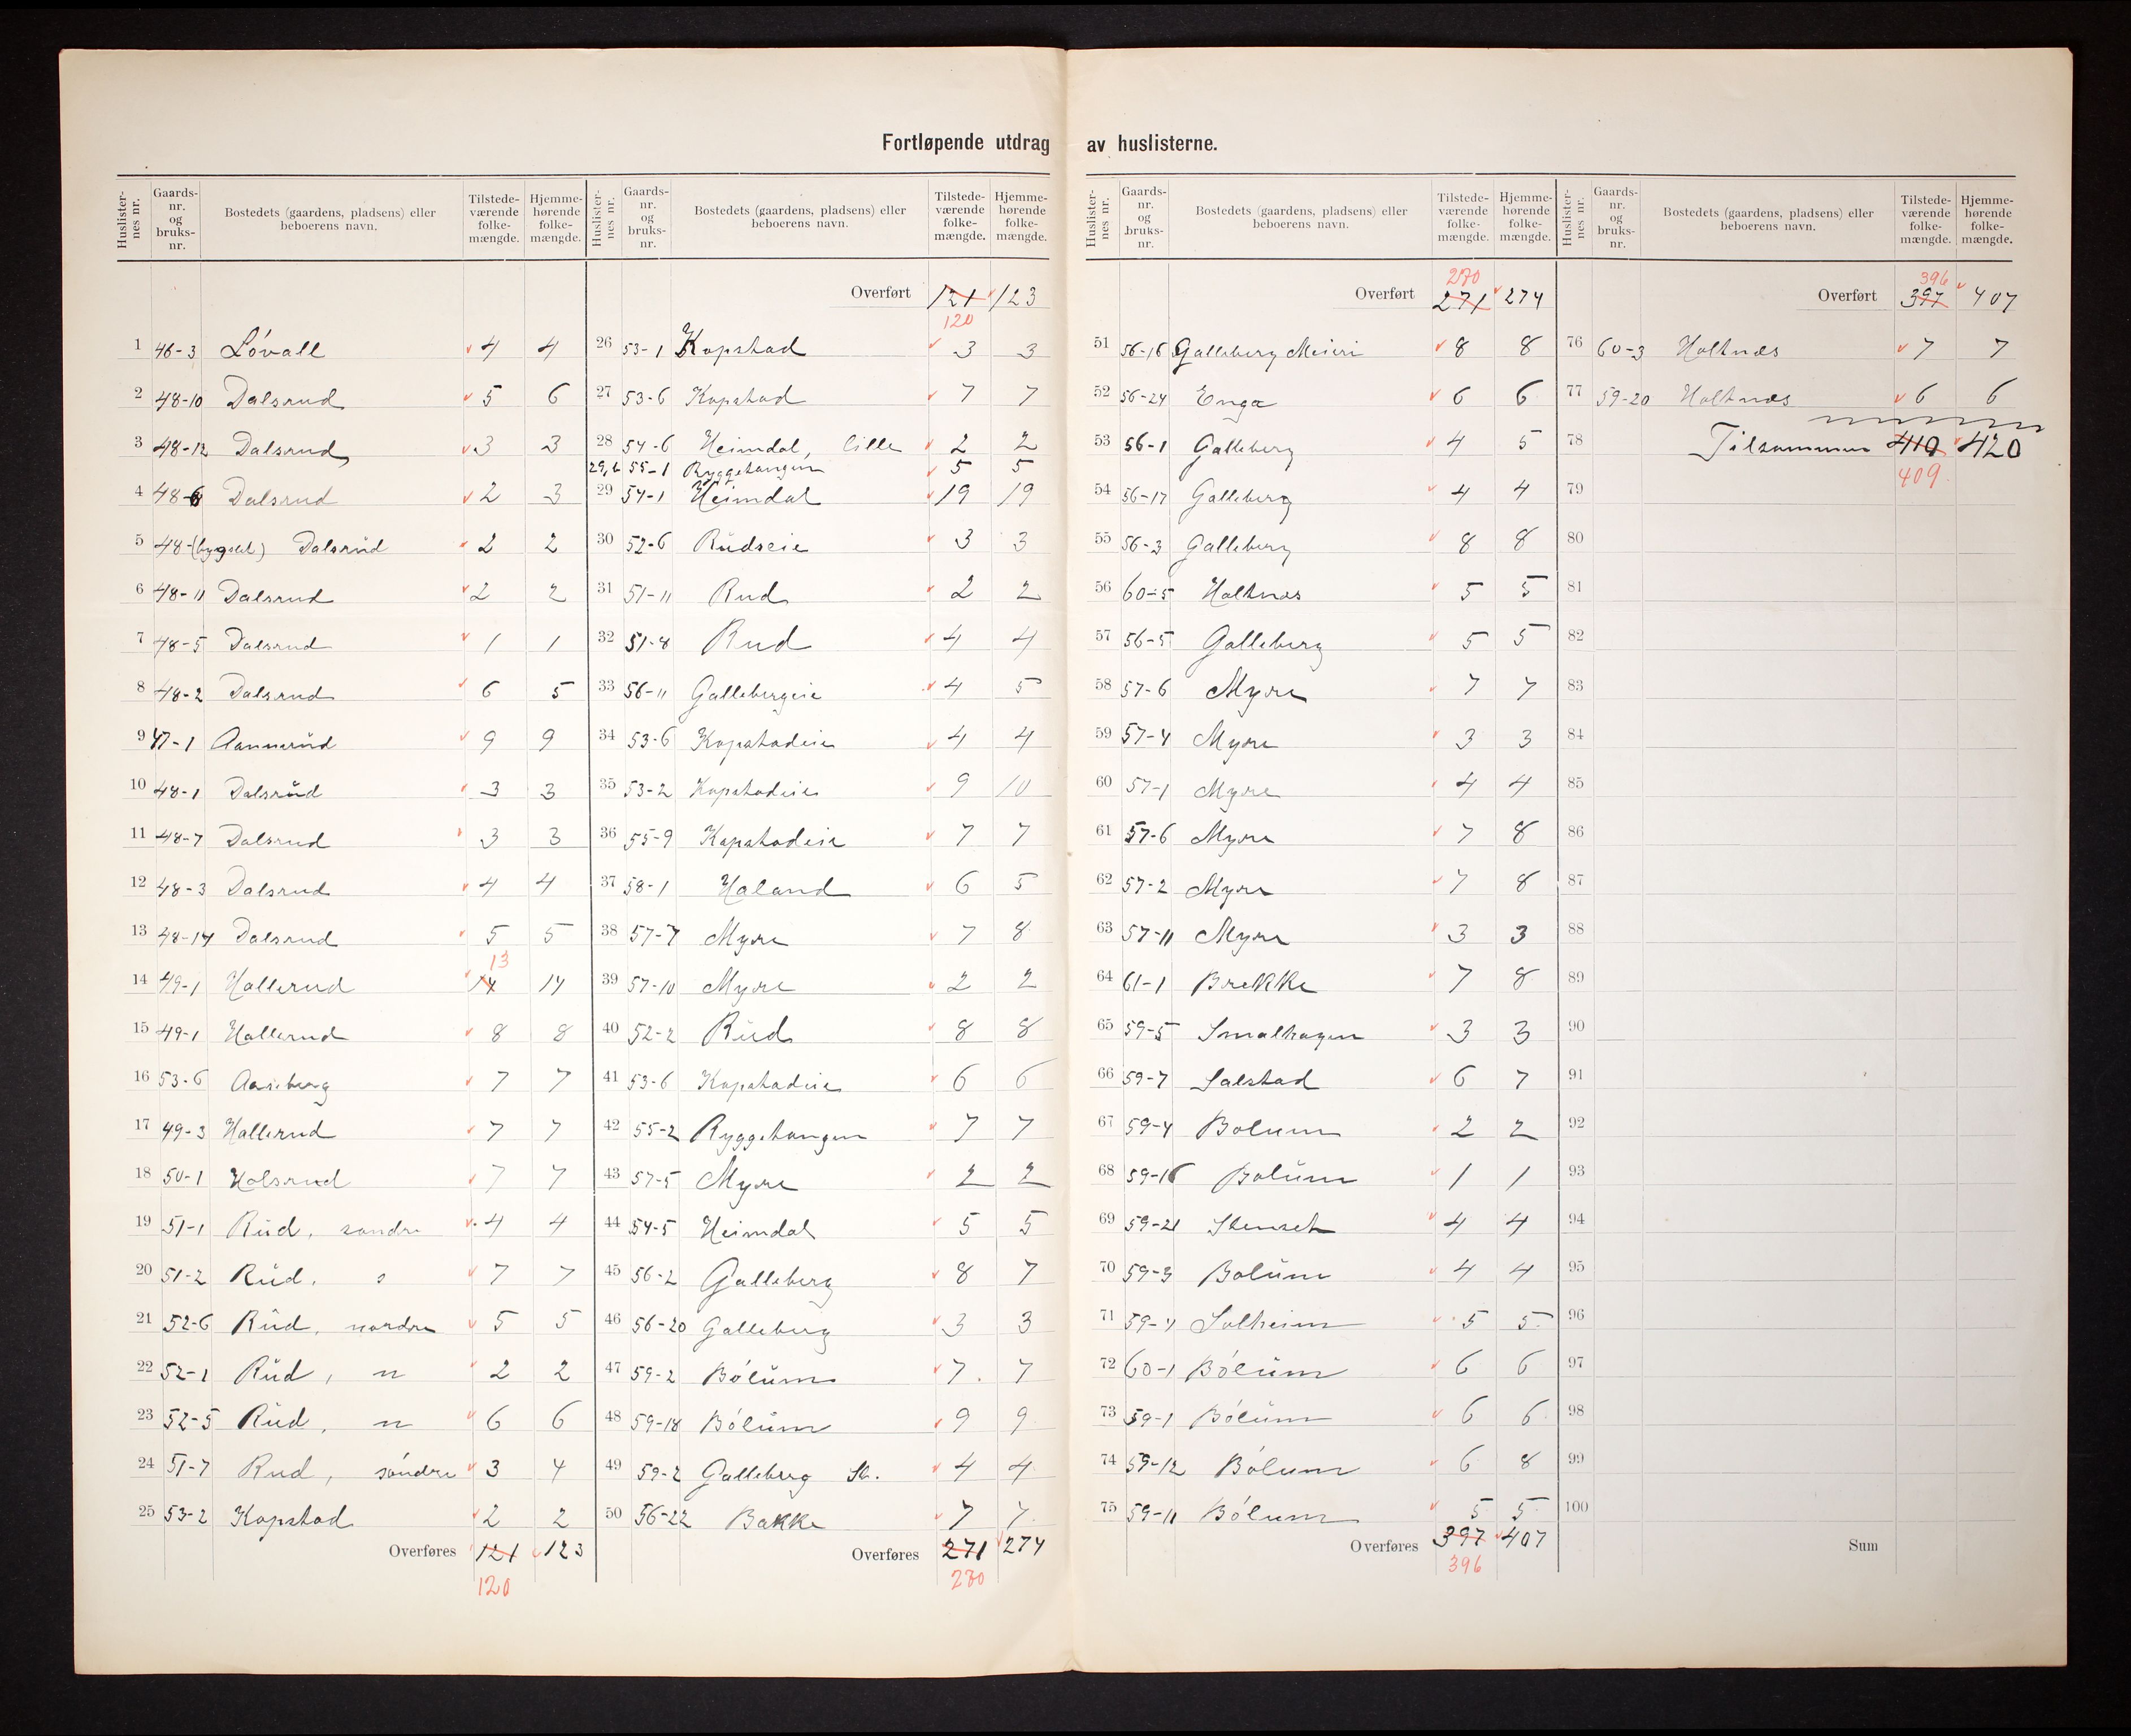 Fortløpende utdrag av huslisterne.
Huslister-nes nr. Gaards-nr. og bruks-nr. Bostedets (gaardens, pladsens) eller beboerens navn. Tilstede-værende folke-mængde. Hjemme-hørende folke-mængde.
1 46-3 Lóvall 4 4
2 48-10 Dalsrud 5 6
3 48-12 Dalsrud 3 3
4 48-6 Dalsrud 2 3
5 48-(bygslet) Dalsrŭd 2 2
6 48-11 Dalsrud 2 2
7 48-5 Dalsrud 1 1
8 48-2 Dalsrud 6 5
9 47-1 Aannerŭd 9 9
10 48-1 Dalsrŭd 3 3
11 48-7 Dalsrud 3 3
12 48-3 Dalsrud 4 4
13 48-14 Dalsrud 5 5
13
14 49-1 Hallerud 14 14
15 49-1 Hallerud 8 8
16 53-6 Aaseberg 7 7
17 49-3 Hallerud 7 7
18 50-1 Holsrud 7 7
19 51-1 Rŭd, søndre 4 4
20 51-2 Rŭd, s 7 7
21 52-6 Rŭd, nordre 5 5
22 52-1 Rŭd, n 2 2
23 52-5 Rŭd, n 6 6
24 51-7 Rud, sóndre 3 4
25 53-2 Kopstad 2 2
Overføres 121 123
120
Huslister-nes nr. Gaards-nr. og bruks-nr. Bostedets (gaardens, pladsens) eller beboerens navn. Tilstede-værende folke-mængde. Hjemme-hørende folke-mængde.
Overført 121 123
120
26 53-1 Kopstad 3 3
27 53-6 Kopstad 7 7
28 54-6 Heimdal, lille 2 2
29,b 55-1 Ryggetangen 5 5
29 54-1 Heimdal 19 19
30 52-6 Rŭdseie 3 3
31 51-11 Rud 2 2
32 51-8 Rud 4 4
33 56-11 Gallebergeie 4 5
34 53-6 Kopstadeie 4 4
35 53-2 Kopstadeie 9 10
36 55-9 Kopstadeie 7 7
37 58-1 Haland 6 5
38 57-7 Myre 7 8
39 57-10 Myre 2 2
40 52-2 Rŭd 8 8
41 53-6 Kopstadeie 6 6
42 55-2 Ryggetangen 7 7
43 57-5 Myre 2 2
44 54-5 Heimdal 5 5
45 56-2 Galleberg 8 7
46 56-20 Galleberg 3 3
47 59-2 Bólŭm 7 7
48 59-18 Bólŭm 9 9
49 59-2 Galleberg St. 4 4
50 56-22 Bakke 7 7
Overføres 271 274
270
Huslister-nes nr. Gaards-nr. og bruks-nr. Bostedets (gaardens, pladsens) eller beboerens navn. Tilstede-værende folke-mængde. Hjemme-hørende folke-mængde.
270
Overført 271 274
51 56-16 Galleberg Meieri 8 8
52 56-24 Enga 6 6
53 56-1 Galleberg 4 5
54 56-17 Galleberg 4 4
55 56-3 Galleberg 8 8
56 60-5 Holtnæs 5 5
57 56-5 Galleberg 5 5
58 57-6 Myre 7 7
59 57-4 Myre 3 3
60 57-1 Myre 4 4
61 57-6 Myre 7 8
62 57-2 Myre 7 8
63 57-11 Myre 3 3
64 61-1 Brekke 7 8
65 59-5 Smalhagen 3 3
66 59-7 Salstad 6 7
67 59-4 Bolum 2 2
68 59-16 Bolŭm 1 1
69 59-21 Stenset 4 4
70 59-3 Bolŭm 4 4
71 59- Solheim 5 5
72 60-1 Bólŭm 6 6
73 59-1 Bólŭm 6 6
74 59-12 Bólum 6 8
75 59-11 Bólum 5 5
Overføres 397 407
396
Huslister-nes nr. Gaards-nr. og bruks-nr. Bostedets (gaardens, pladsens) eller beboerens navn. Tilstede-værende folke-mængde. Hjemme-hørende folke-mængde.
396
Overført 397 407
76 60-3 Holtnæs 7 7
77 59-20 Holtnæs 6 6
78 Tilsammen 410 420
409
79
80
81
82
83
84
85
86
87
88
89
90
91
92
93
94
95
96
97
98
99
100
Sum